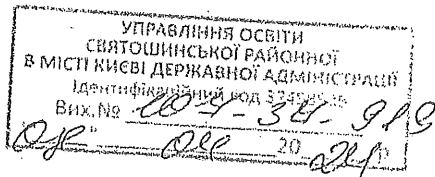 УПРАВЛІННЯ ОСВІТИ
СВЯТОШИНСЬКОЇ РАЙОННОЇ
В МІСТІ КИЄВІ ДЕРЖАВНОЇ АДМІНІСТРАЦІЇ
Ідентифікаційний код
Вих.№ 107-34-919
" 04 20 24 р.